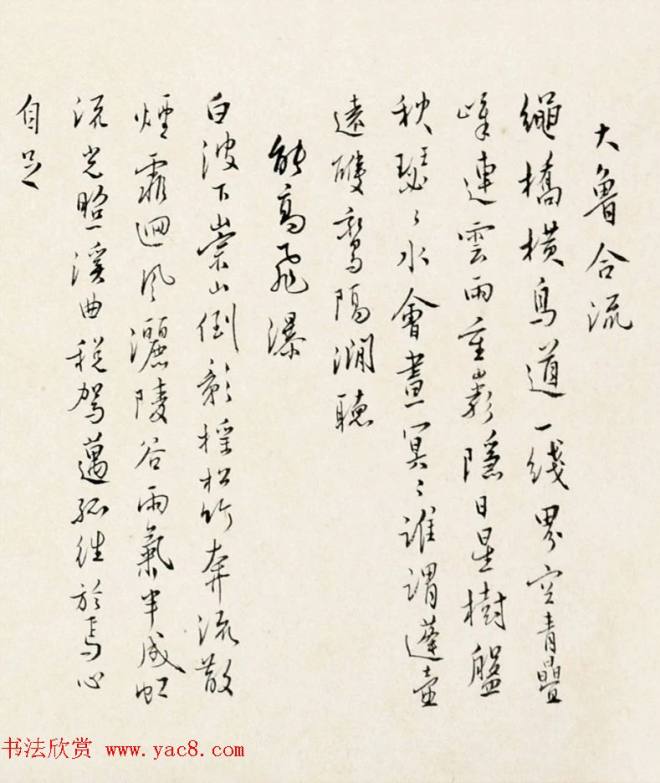 大魯合流
繩橋橫鳥道一綫界空青疊
嶂連雲雨重巖隱日星樹盤
秋瑟〻水會晝冥〻誰謂蓬壺
遠隔澗聽
能高飛瀑
白波下崇山倒影搖松竹奔流散
煙霏迴風灑陵谷雨氣半成虹
流光照溪曲稅駕邁孤往於焉心
自足
书法欣赏 www.yac8.com